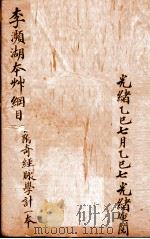 光緒乙巳七月乙巳七光緒
李瀕湖本艸綱目
奇經脈學計一本